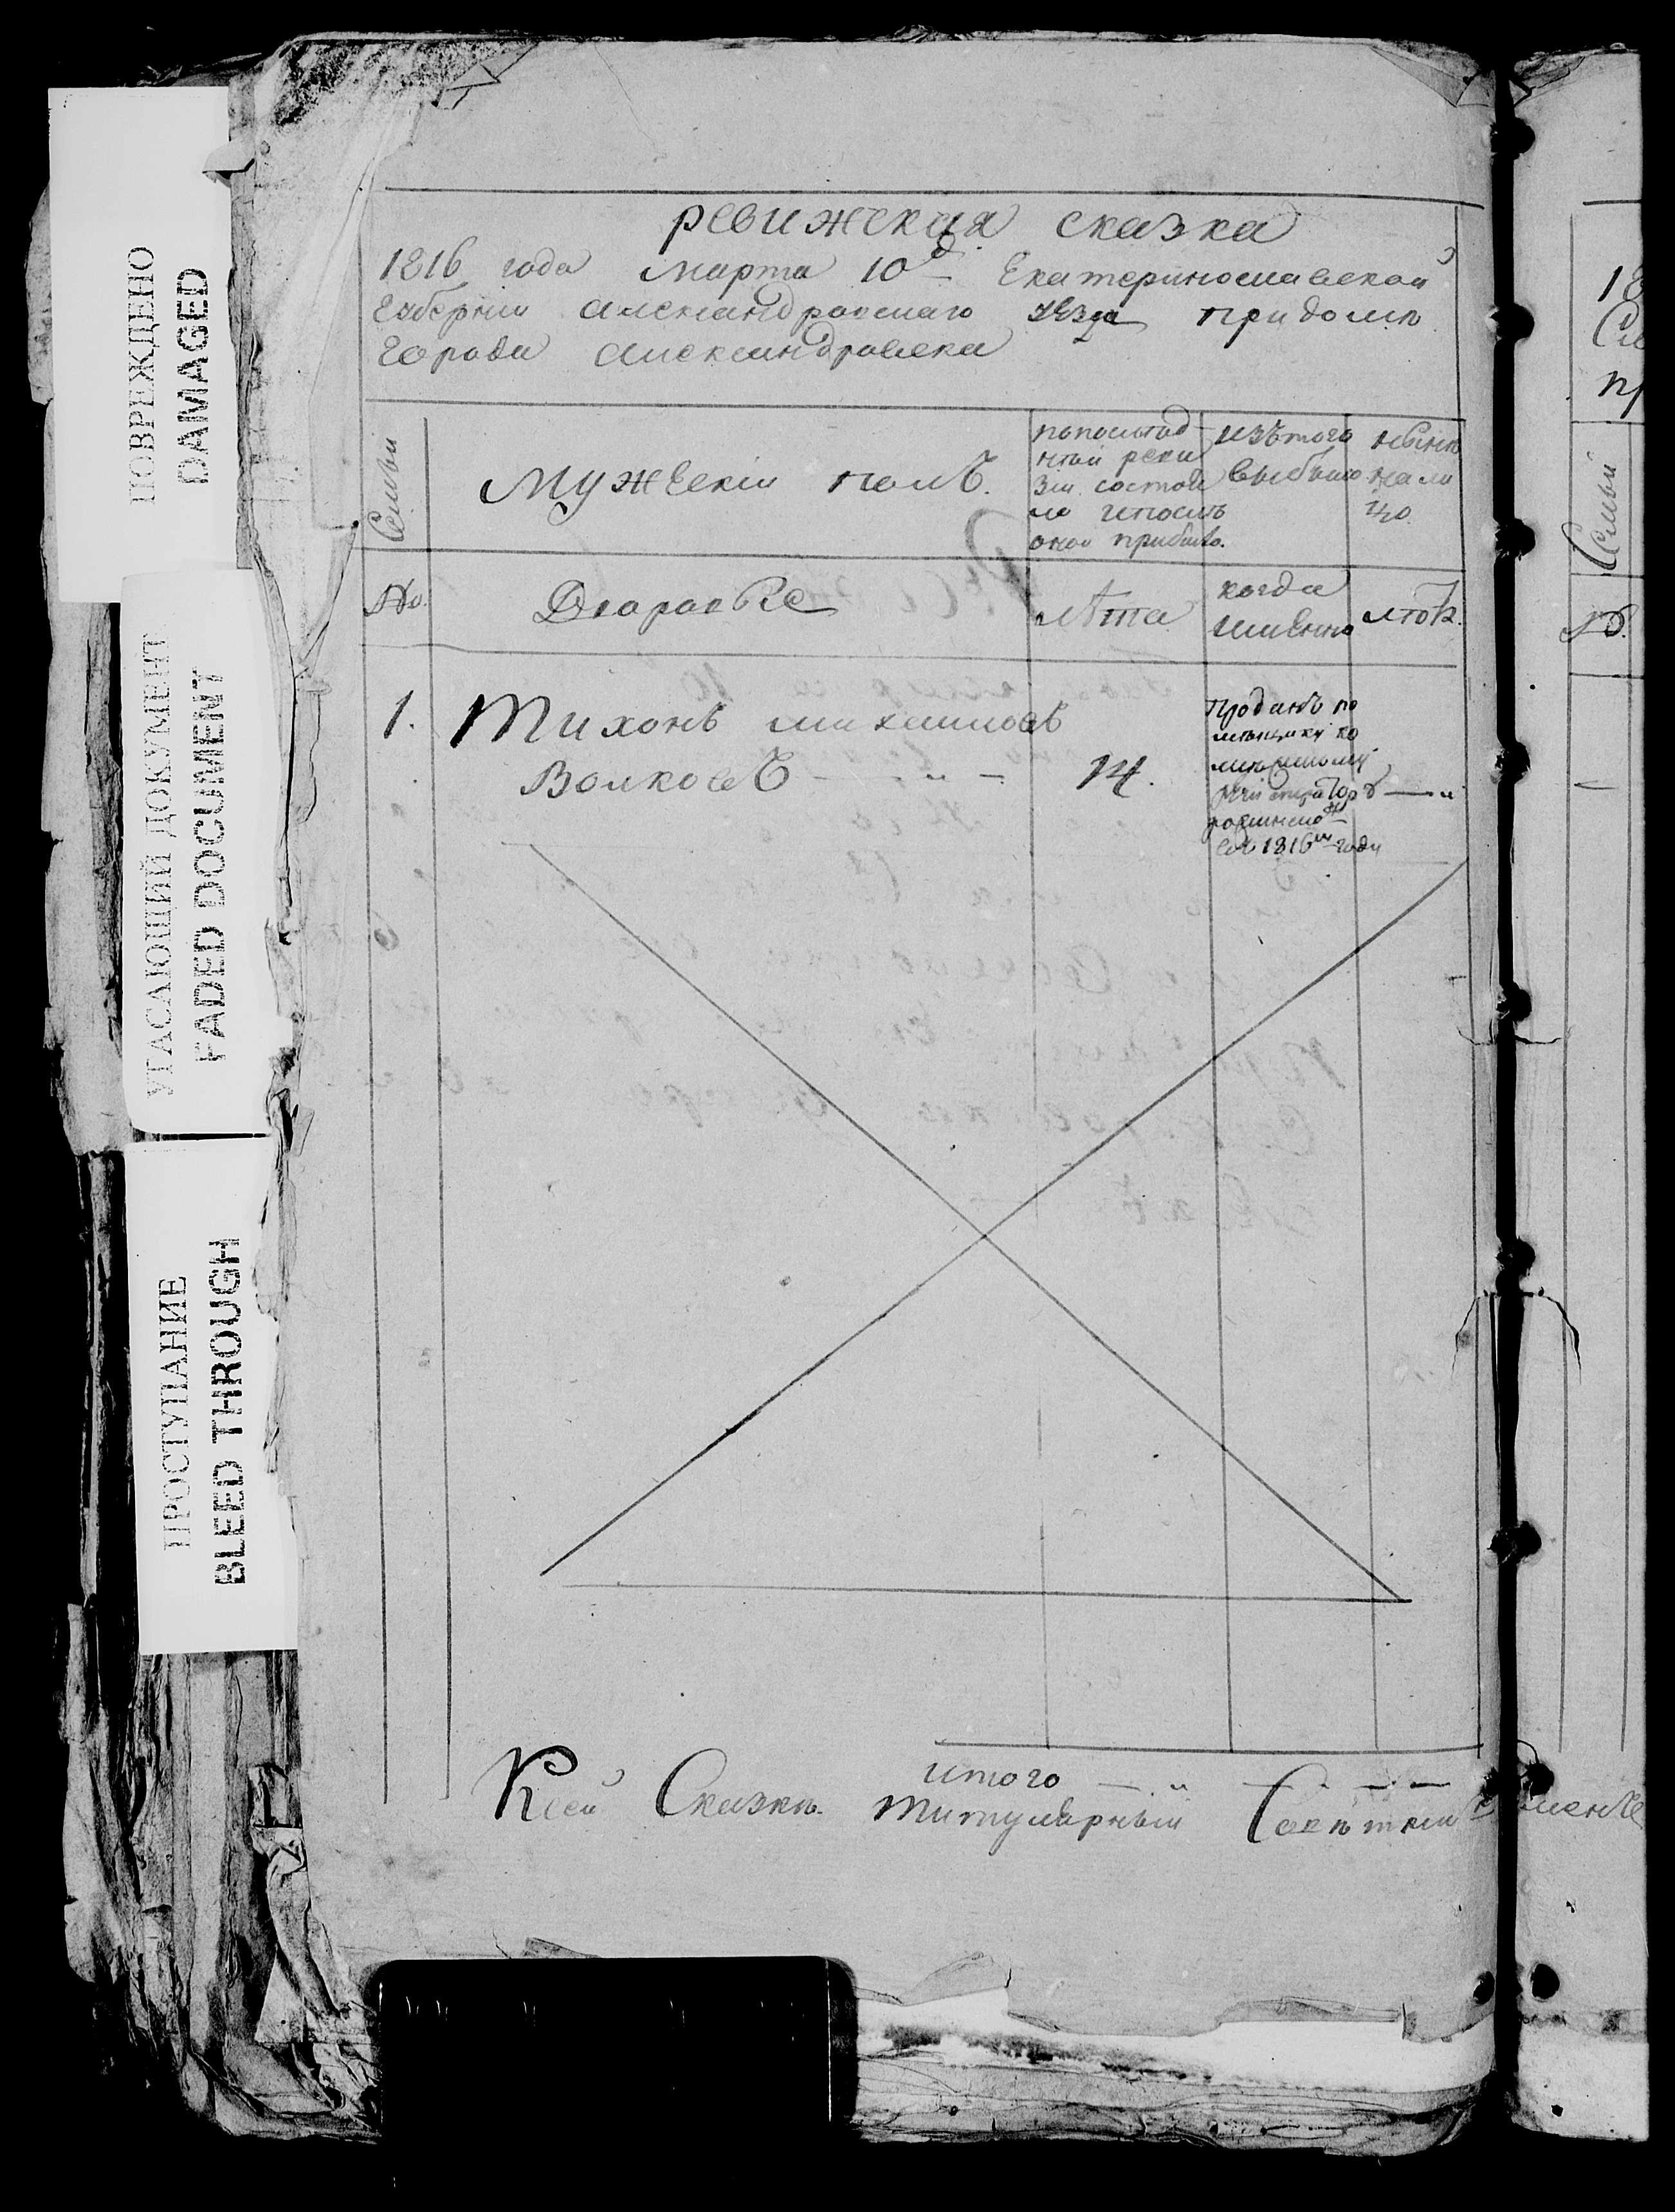 ПОВРЕЖДЕНО
DAMAGED
УГАСАЮЩИЙ ДОКУМЕНТ
FADED DOCUMENT
ПРОСТУПАНИЕ
BLEED THROUGH
ревижская сказка
1816 года марта 10д Екатеринославской
Губернии александровскаго уезда при доме
города александровска
Семьи
Мужескій полъ.
попослед
ней реви
зіи состоя
ло ипосле
оной прибыло.
изътого
выбыло
ныне
нали
цо.
№.
Дворовые
лѣта
когда
имянно
лѣтъ.
1. Тихонъ михаиловъ
Волковъ
14.
Проданъ по
мещику ко
лежскому
регистратору
въ 1816м году
итого
Ксей Сказке титулярный
Семьи
№.